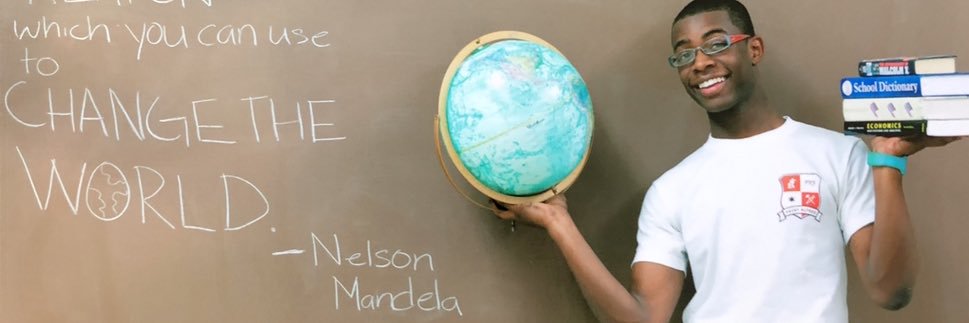 which you can use
to
CHANGE THE
WORLD.
- Nelson
Mandela
MALCOLM X
School Dictionary
ECONOMICS